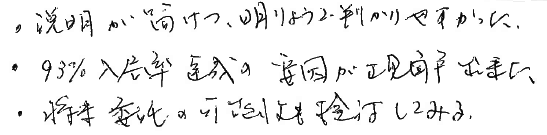 ・説明が簡けつ、明りょうで判かりやすかった。
・93%入居率達成の要因が理解出来た。
・将来委託の可能性も検討してみる。